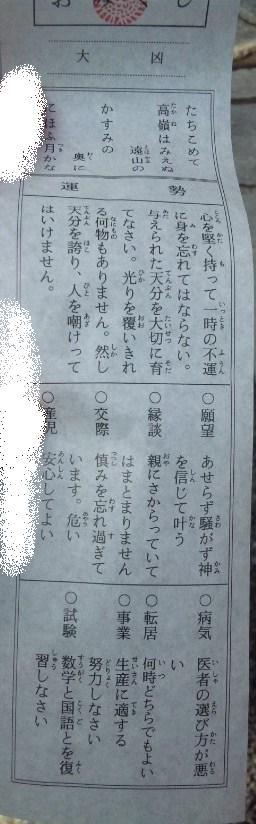 大凶
たちこめて
高嶺はみえぬ
遠山の
かすみの
奥に
にほふ月かな
運勢
心を堅く持って一時の不運
に身を忘れてはならない。
与えられた天分を大切に育
てなさい。光りを覆いきれ
る何物もありません。然し
天分を誇り、人を嘲けって
はいけません。
○願望 あせらず騒がず神
を信じて叶う
○縁談 親にさからっていて
はまとまりません
○交際 慎みを忘れ過ぎて
います。危い
○産児 安心してよい
○病気 医者の選び方が悪
い
○転居 何時どちらでもよい
○事業 生産に適する
努力しなさい
○試験 数学と国語とを復
習しなさい